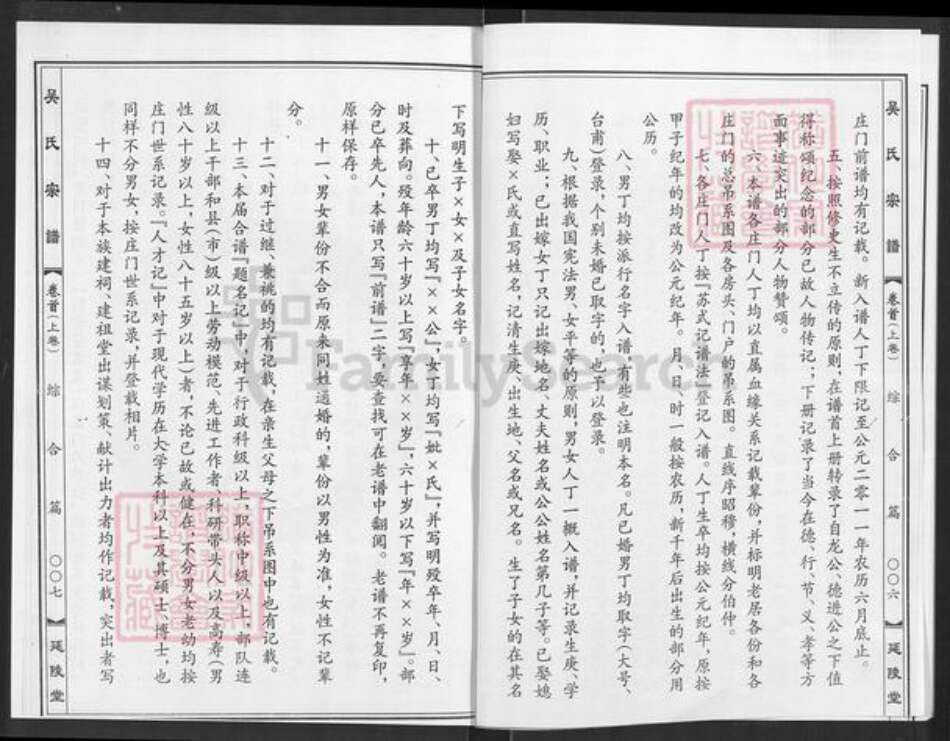 吴氏宗谱【卷首(上卷) 综合篇 〇〇六】延陵堂
庄门前谱均有记载。新入谱人丁下限记至公元二零一一年农历六月底止。
五、按照修史生不立传的原则,在谱首上册转录了自龙公、德进公之下值
得称颂纪念的部分已故人物传记;下册记录了当今在德、行、节、义、孝等方
面事迹突出的部分人物赞颂。
六、本谱各庄门人丁均以直属血缘关系记载辈份,并标明老居各份和各
庄门的总吊系图及各房头、门户的吊系图。直线序昭穆,横线分伯仲。
七、各庄门人丁按『苏式记谱法』登记入谱。人丁生卒均按公元纪年,原按
甲子纪年的均改为公元纪年。月、日、时一般按农历,新千年后出生的部分用
公历。
八、男丁均按派行名字入谱,有些也注明本名。凡已婚男丁均取字(大号、
台甫)登录,个别未婚已取字的,也予以登录。
九、根据我国宪法男、女平等的原则,男女人丁一概入谱,并记录生庚、学
历、职业;已出嫁女丁只记出嫁地名、丈夫姓名或公公姓名第几子等。已娶媳
妇写娶×氏或直写姓名,记清生庚、出生地、父名或兄名。生了子女的在其名
下写明生子×女×及子女名字。
十、已卒男丁均写『××公』,女丁均写『妣×氏』,并写明殁卒年、月、日、
时及葬向。殁年龄六十岁以上写『享年××岁』,六十岁以下写『年××岁』。部
分已卒先人,本谱只写『前谱』二字,要查找可在老谱中翻阅。老谱不再复印,
原样保存。
十一、男女辈份不合而原来同姓远婚的,辈份以男性为准,女性不记辈
分。
十二、对于过继、兼祧的均有记载,在亲生父母之下吊系图中也有记载。
十三、本届合谱『题名记』中,对于行政科级以上,职称中级以上,部队连
级以上干部和县(市)级以上劳动模范、先进工作者、科研带头人以及高寿(男
性八十岁以上,女性八十五岁以上)者,不论已故或健在,不分男女老幼均按
庄门世系记录。『人才记』中对于现代学历在大学本科以上及其硕士、博士,也
同样不分男女,按庄门世系记录,并登载相片。
十四、对于本族建祠、建祖堂出谋划策、献计出力者均作记载,突出者写
吴氏宗谱【卷首(上卷) 综合篇 〇〇七】延陵堂
FamilySearch